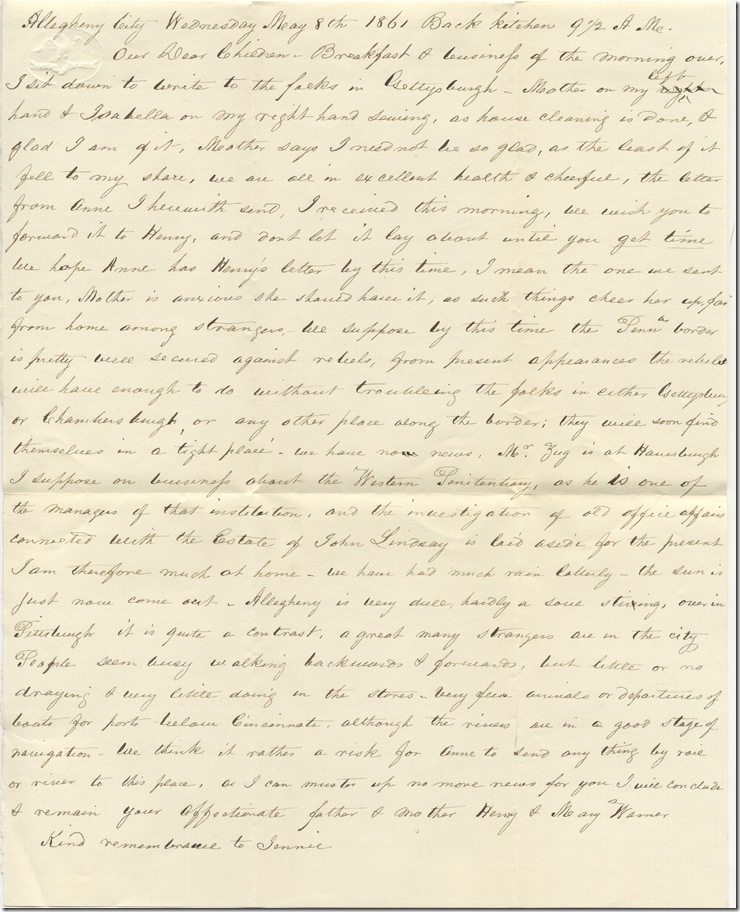 Allegheny City Wednesday May 8th 1861 Back kitchen 9½ A M.
Our Dear Children - Breakfast & business of the morning over,
I sit down to write to the folks in Gettysburgh - Mother on my left
hand & Isabella on my right hand sewing, as house cleaning is done, &
glad I am of it, Mother says I need not be so glad, as the least of it
fell to my share, we are all in excellent health & cheerful, the letter
from Anne I herewith send, I received this morning, we wish you to
forward it to Henry, and dont let it lay about until you get time
We hope Anne has Henry's letter by this time, I mean the one we sent
to you, Mother is anxious she should have it, as such things cheer her up, far
from home among strangers, We suppose by this time the Penna border
is pretty well secured against rebels, from present appearances the rebels
will have enough to do without troubling the folks in either Gettysburg
or Chambersburgh, or any other place along the border; they will soon find
themselves in a tight place - we have no news, Mr. Zug is at Harrisburgh
I suppose on business about the Western Penitentiary, as he is one of
the managers of that institution, and the investigation of old office affairs
connected with the Estate of John Lindsay is laid aside for the present
I am therefore much at home - we have had much rain latterly - the sun is
just now come out - Allegheny is very dull, hardly a soul stiring, over in
Pittsburgh it is quite a contrast, a great many strangers are in the city
People seem busy walking backwards & forwards, but little or no
draying & very little doing in the stores - very few arrivals or departures of
boats for ports below Cincinnate, although the rivers are in a good stage of
navigation - We think it rather a risk for Anne to send any thing by rail
or river to this place, as I can muster up no more news for you I will conclude
& remain your affectionate father & mother Henry & Mary Warner
Kind remembrance to Jennie